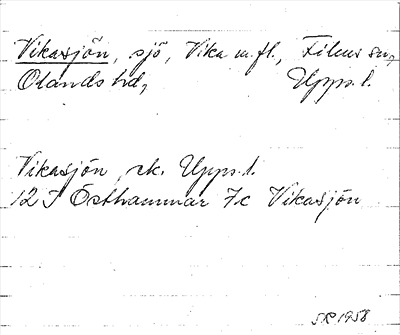 Vikasjön, sjö, Vika m.fl., Films sn,
Olands hd, Upps. l.
Vikasjön rk. Upps. l.
12 I Östhammar 7c Vikasjön
SR 1958